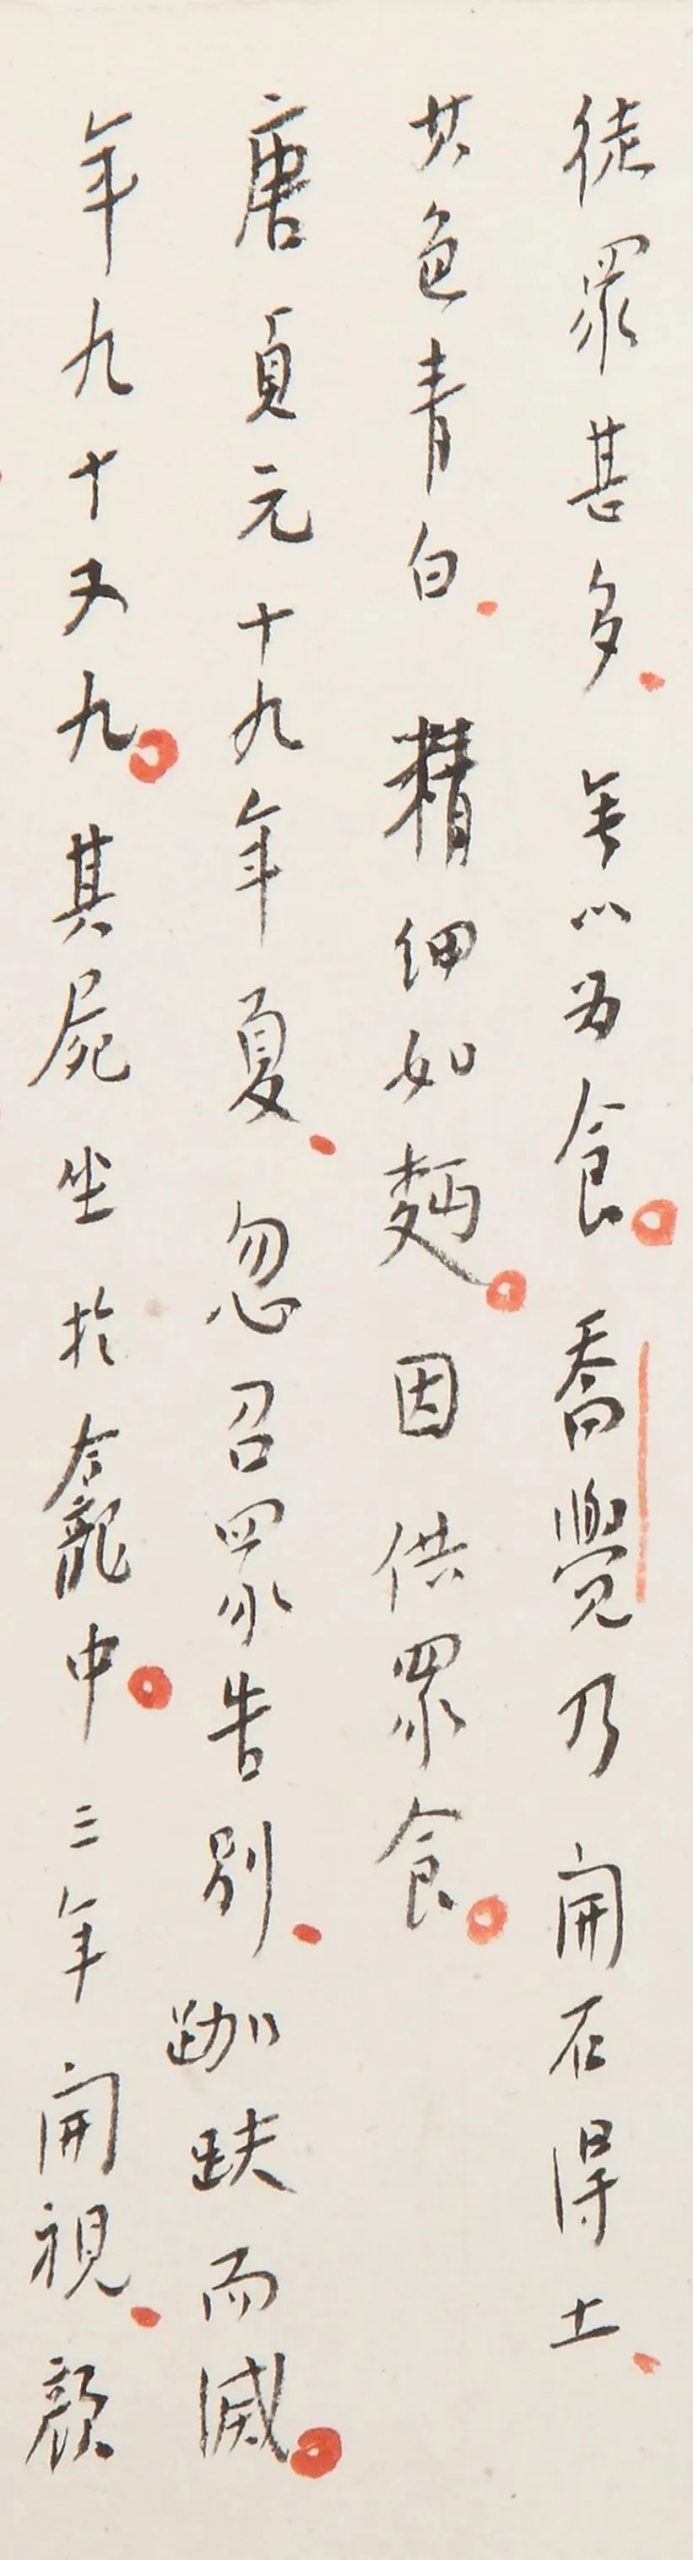 徒眾甚多、無以为食。喬覺乃開石得土、
其色青白、精細如麵。因供眾食。
唐貞元十九年夏、忽召眾告別、跏趺而滅。
年九十又九。其屍坐於龕中。三年開視、顏